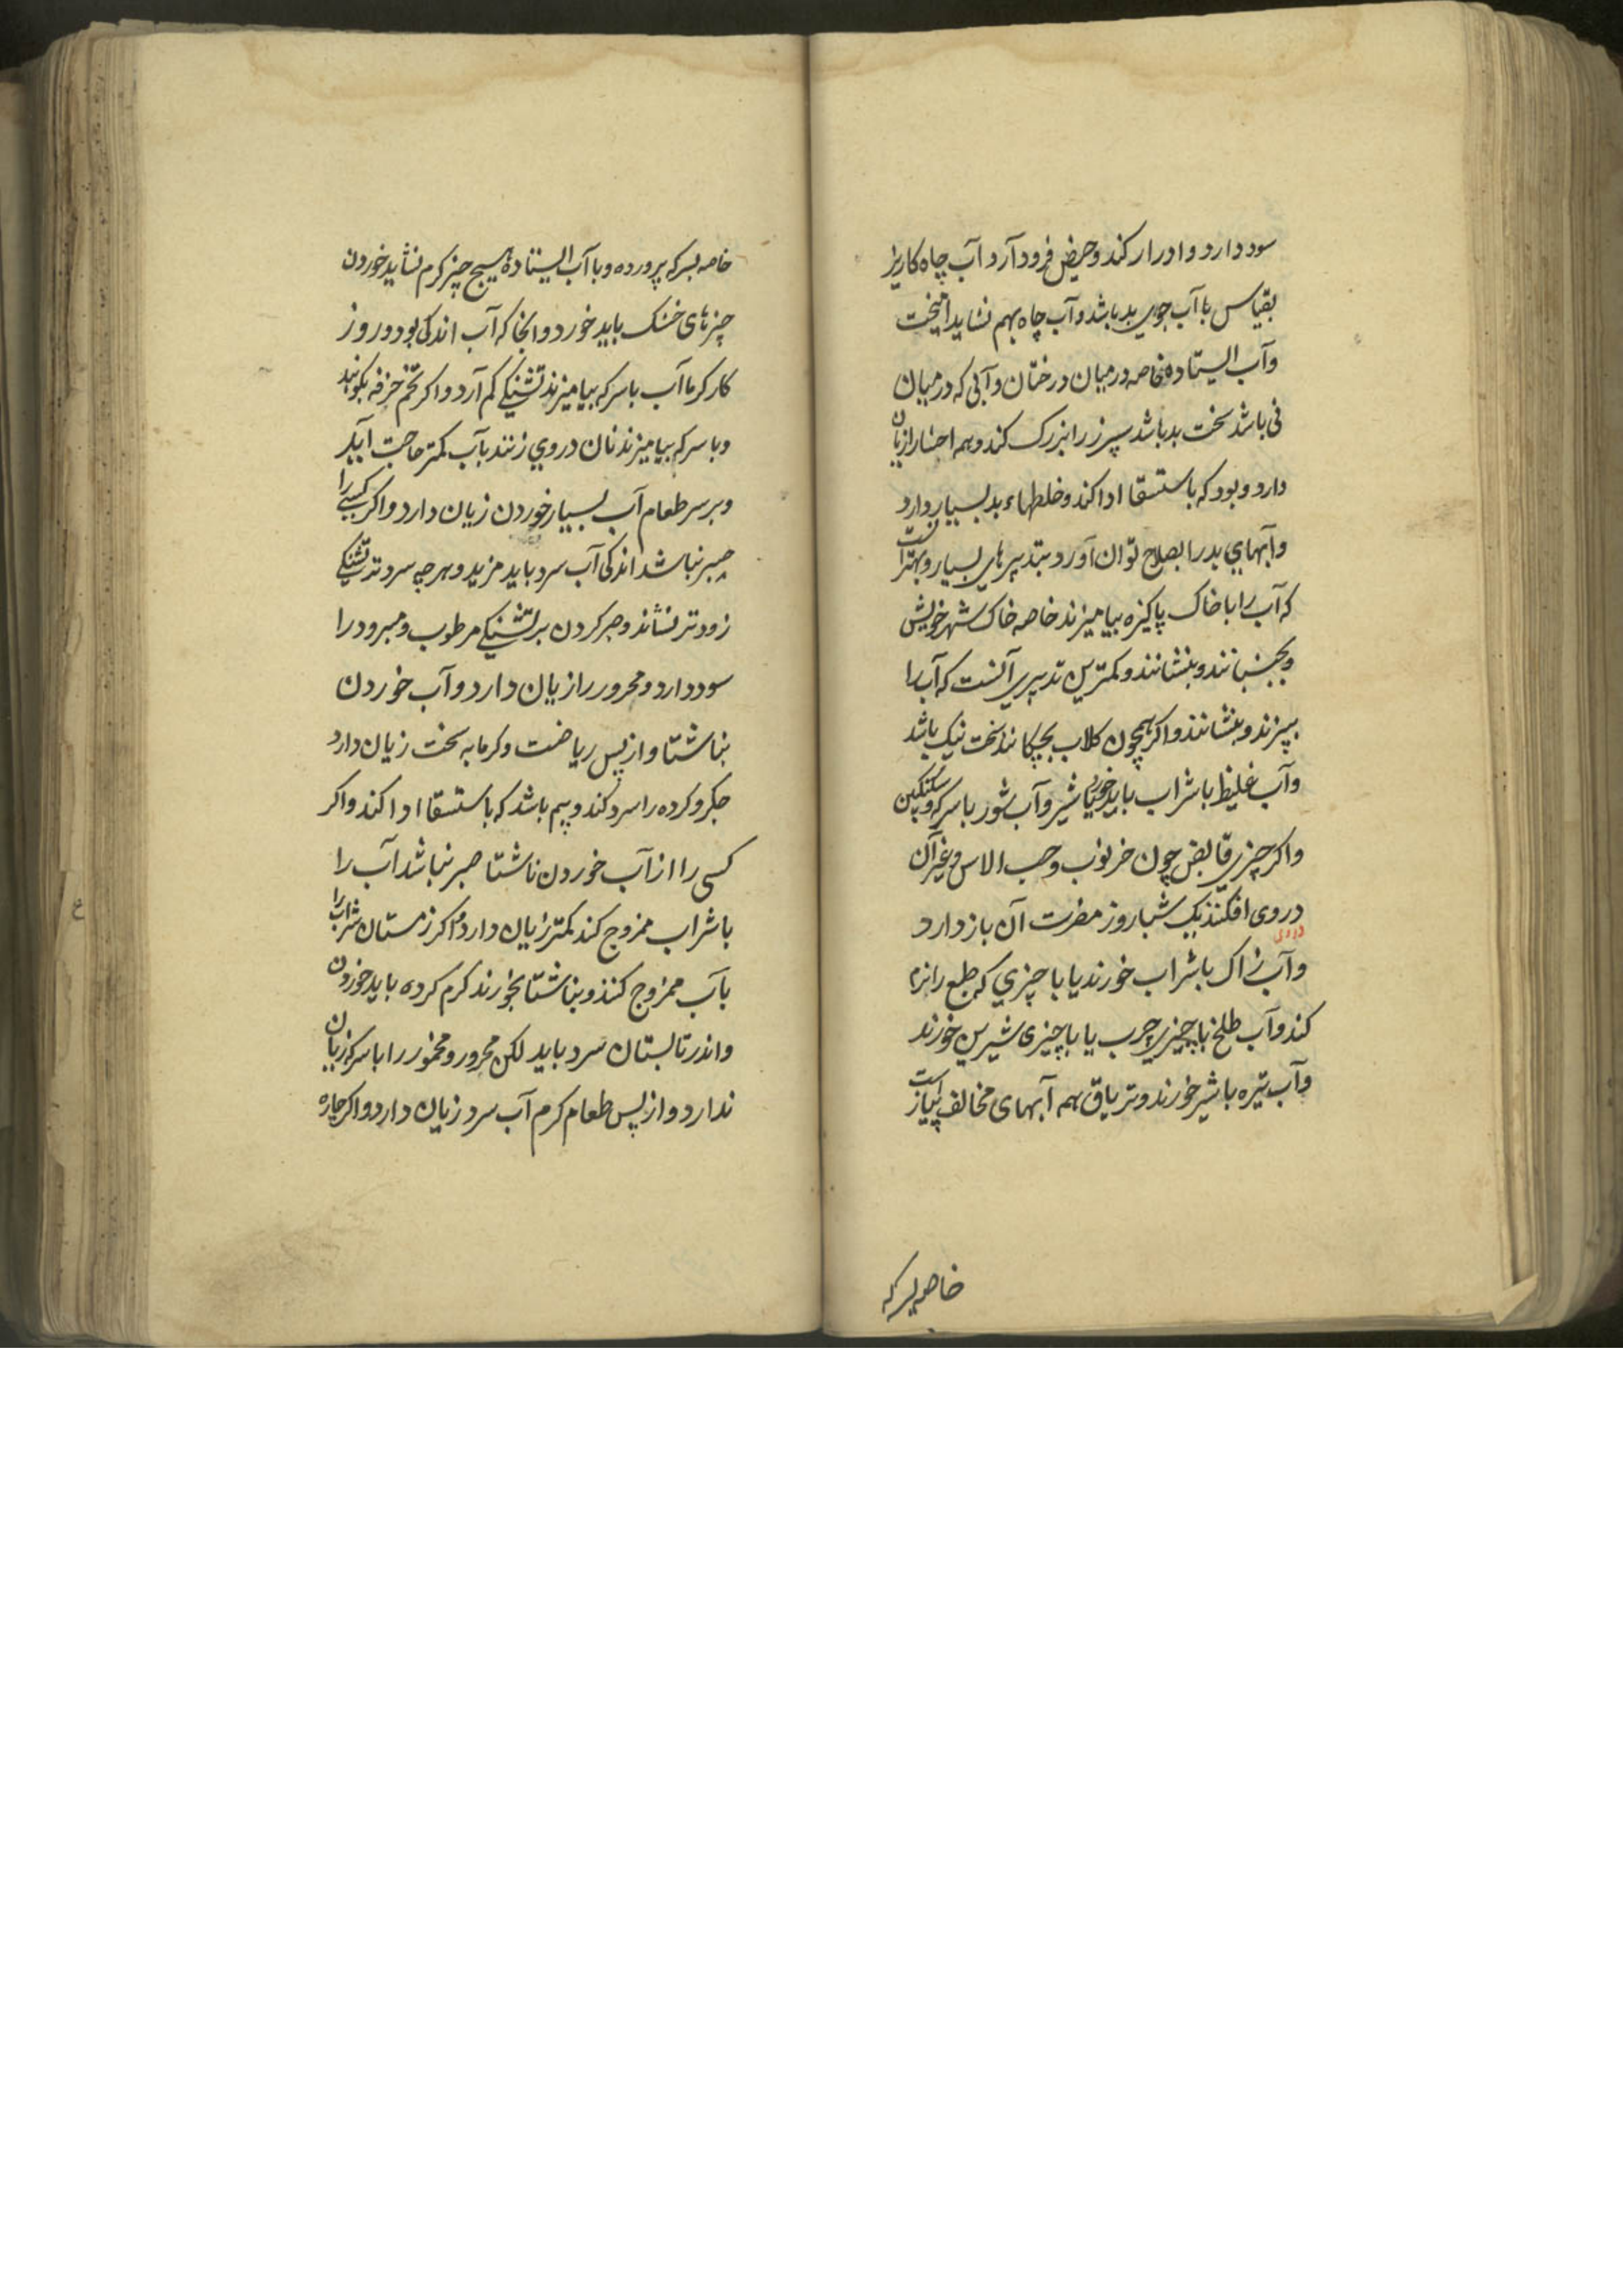 سود دارد و ادرار کند و حیض فرود آرد آب چاه کاریز
بقیاس با آب جوی بد باشد و آب چاه بهم نشاید آمیخت
و آب ایستاده خاصه در میان درختان و آبی که در میان
نی باشد سخت بد باشد سپرز را بزرک کند و همه احشا را زیان
دارد و بود که باستسقا ادا کند و خلطهاء بد بسیار دارد
و آبهای بد را بصلاح توان آورد بتدبیرهای بسیار و بهتر آنست
که آب را با خاک پاکیزه بیامیزند خاصه خاک شهر خویش
و بجنبانند و بنشانند و کمترین تدبیری آنست که آب را
بپزند و بنشانند و اکر همچون کلاب بچکانند سخت نیک باشد
و آب غلیظ با شراب باید خورد یا شیر و آب شور با سرکه و سکنکبین
و اکر چیزی قابض چون خرنوب و حب الاس و غیر آن
در وی افکنند یک شباروز مضرت آن باز دارد
در وی
و آب زاک با شراب خورند یا با چیزی که طبع را نرم
کند و آب طلخ با چیزی چرب یا با چیزی شیرین خورند
و آب تیره با شیر خورند و تریاق همه آبهای مخالف پیاز است
خاصه بسرکه
خاصه بسرکه پرورده و با آب ایستاده هیچ چیز کرم نشاید خوردن
چیزهای خشک باید خورد و انجا که آب اندکی بود و روز
کار کرما آب با سرکه بیامیزند تشنکی کم آرد و اکر تخم خرفه بکوبند
و با سرکه بیامیزند نان در وی زنند بآب کمتر حاجت آید
و بر سر طعام آب بسیار خوردن زیان دارد و اکر کسی را
صبر نباشد اندکی آب سرد باید مزید و هر چه سردتر تشنکی
زودتر نشاند و صبر کردن بر تشنکی مرطوب و مبرود را
سود دارد و محرور را زیان دارد و آب خوردن
بناشتا و از پس ریاضت و کرمابه سخت زیان دارد
جکر و کرده را سرد کند و بیم باشد که باستسقا ادا کند و اکر
کسی را از آب خوردن ناشتا صبر نباشد آب را
با شراب ممزوج کند کمتر زیان دارد و اکر زمستان شراب را
بآب ممزوج کنند و بناشتا بخورند کرم کرده باید خوردن
و اندر تابستان سرد باید لکن محرور و مخمور را با سرکه زیان
ندارد و از پس طعام کرم آب سرد زیان دارد و اکر چاره